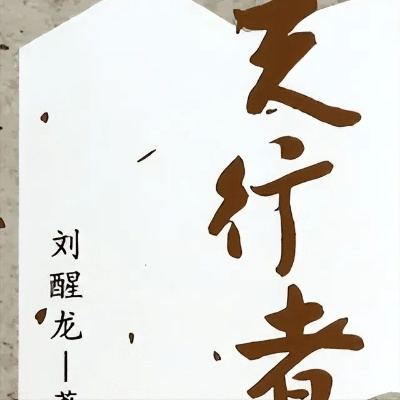 天行者
刘醒龙一著